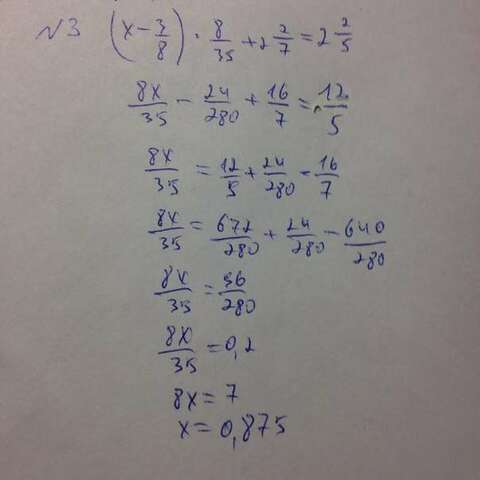 №3 (x - 3/8) · 8/35 + 2 2/7 = 2 2/5
8x/35 - 24/280 + 16/7 = 12/5
8x/35 = 12/5 + 24/280 - 16/7
8x/35 = 672/280 + 24/280 - 640/280
8x/35 = 56/280
8x/35 = 0,2
8x = 7
x = 0,875